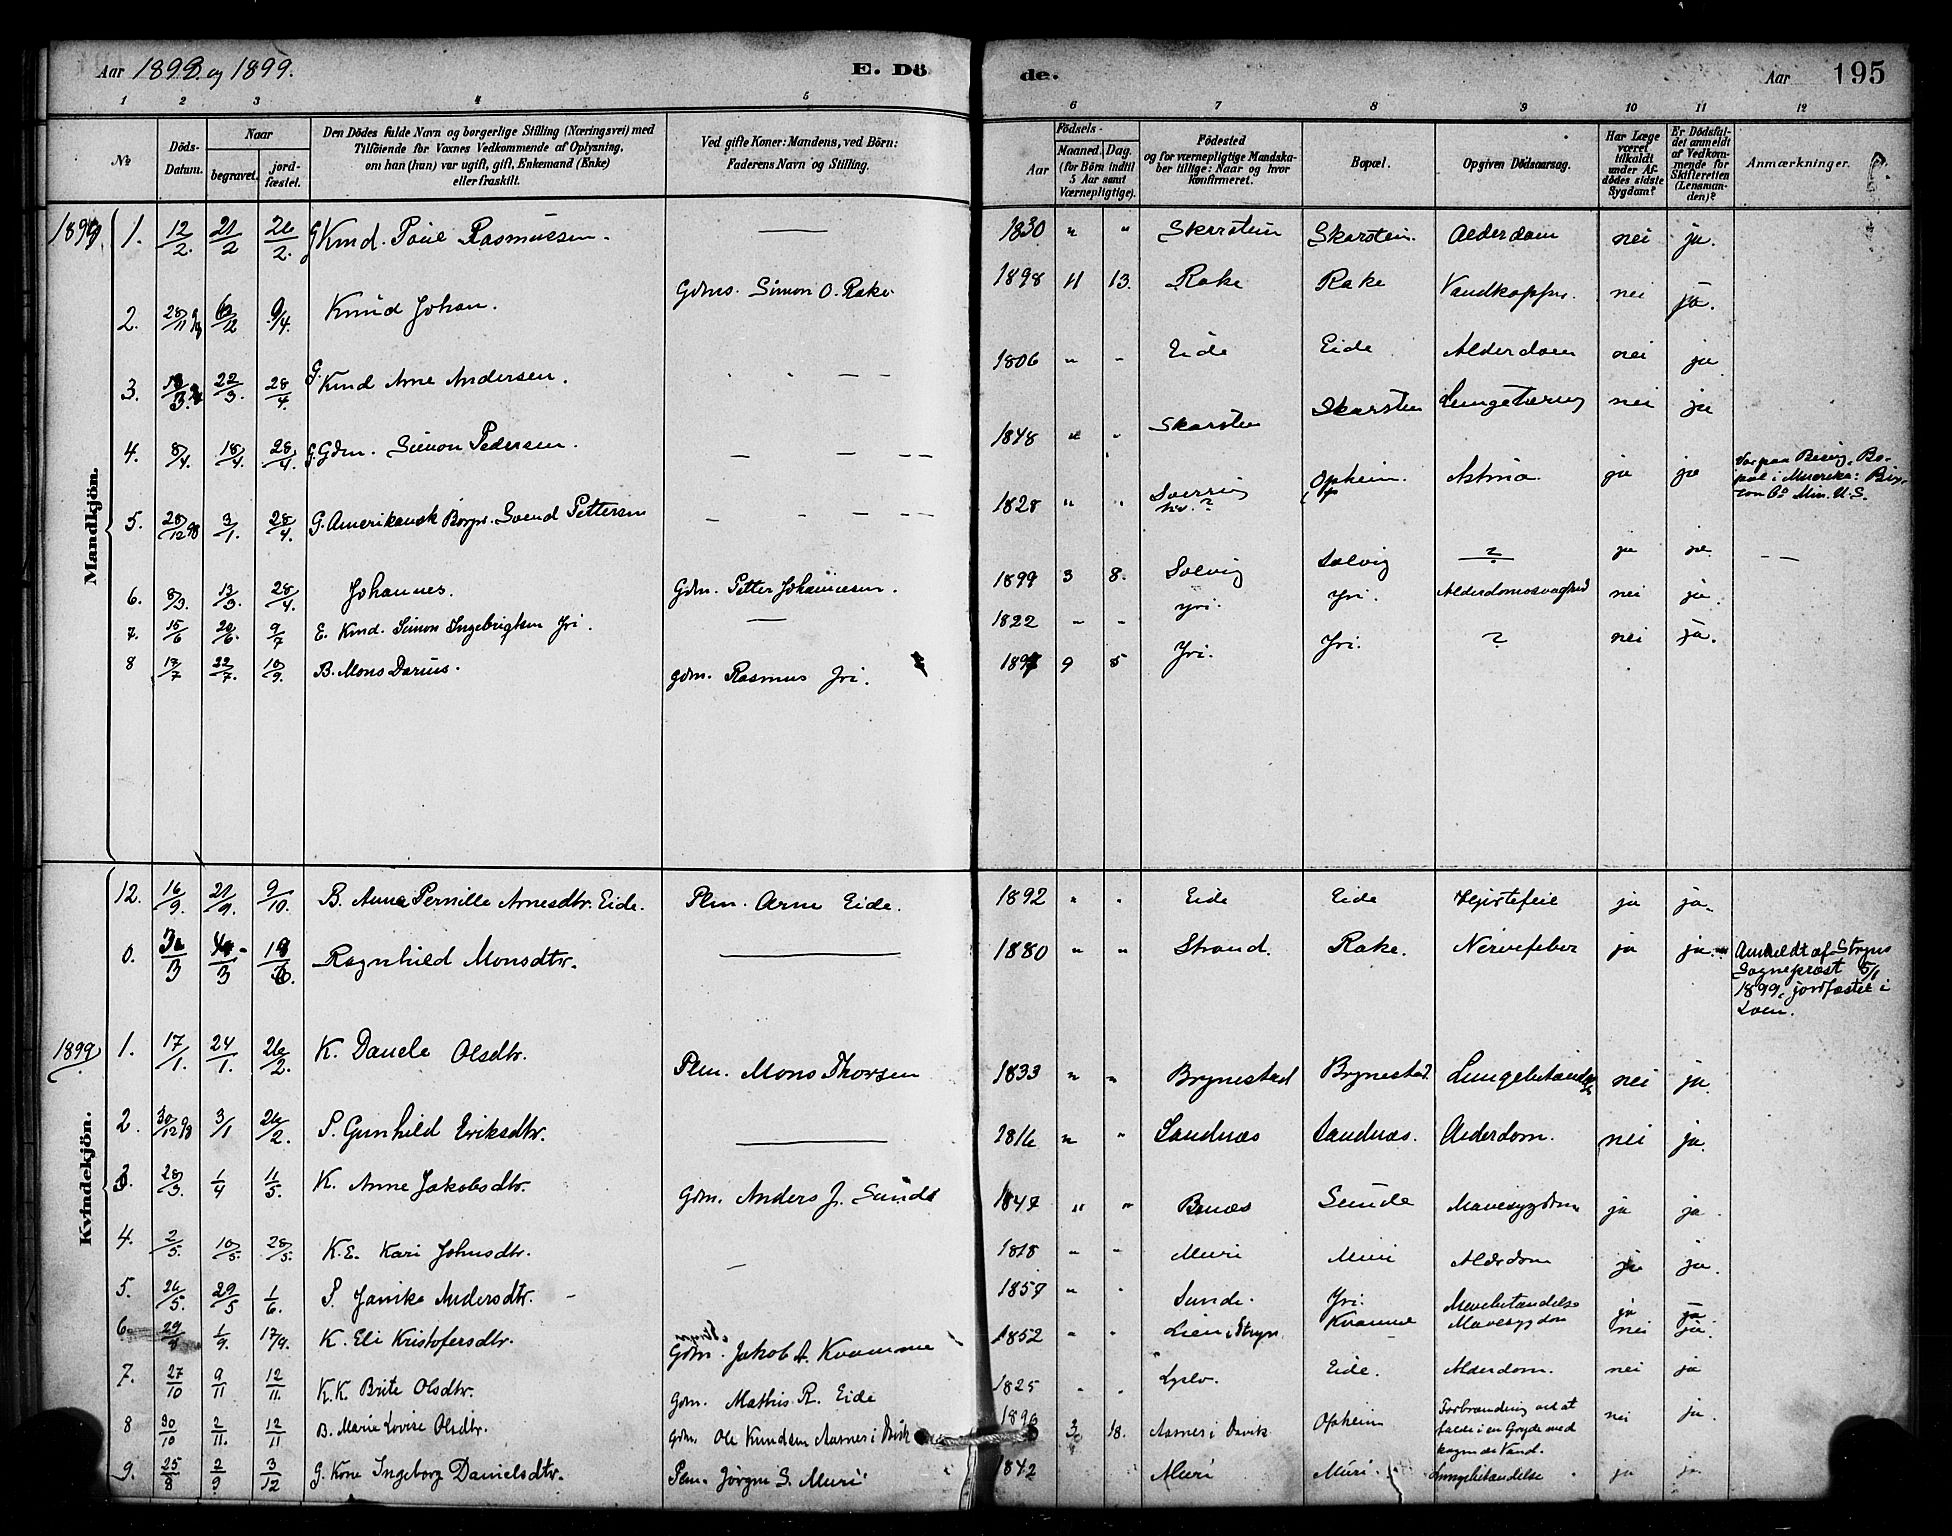 Aar 1898 og 1899. E. Dö de. Aar 195
1 2 3 4 5 6 7 8 9 10 11 12
No
Döds-Datum.
Naar
begravet.
jord-fæstet.
Den Dödes fulde Navn og borgerlige Stilling (Næringsvei) med
Tilföiende for Voxnes Vedkommende af Oplysning,
om han (hun) var ugift, gift, Enkemand (Enke)
eller fraskilt.
Ved gifte Koner: Mandens, ved Börn:
Faderens Navn og Stilling.
Födsels-
Aar
Maaned. Dag.
(for Börn indtil
5 Aar samt
Værnepligtige).
Födested
og for værnepligtige Mandska-
ber tillige: Naar og hvor
Konfirmeret.
Bopæl.
Opgiven Dödsaarsag.
Har Læge
været
tilkaldt
under Af-
dödes sidste
Sygdom?
Er Dödsfal-
det anmeldt
af Vedkom-
mende for
Skifteretten
(Lensman-
den)?
Anmærkninger.
Mandkjön.
1899. 1. 12/2. 21/2 26/2. G Kmd. Poul Rasmussen. — 1830 " " Skarstein Skarstein. Alderdom nei ja.
2. 28/11 98 9/4. Knud Johan. Gdms. Simon O. Rake 1898 11 13. Rake Rake Vandkopper. nei ja.
3. 22/3. 28/4. G. Kmd Arne Andersen. — — 1806 " " Eide Eide Alderdom nei ja
4. 8/4. 18/4. 28/4. G. Gdm. Simon Pedersen. — — — 1848 " " Skarsten Skarsten Lungetæring nei ja
5. 28/12 98 3/1. 28/4. G. Amerikansk Borger. Svend Pettersen — — — 1828 " " Opheim. Astma ja ja Var paa Besøg. Bo-
pæl i Amerika:
Co Min. U.S.
6. 8/3. 13/3. 28/4. Johannes. Gdm. Petter Johannesen. 1899 3 8. Solvig Solvig ? ja ja — —
7. 15/6 20/6. 9/7 E. Kmd. Simon Ingebrigtsen Yri. — 1822 " " Yri. Yri. Alderdomssvaghed nei ja.
8 13/7 22/7. 10/9. B. Mons Darius. Gdm. Rasmus Yri. 9 5 Yri. Yri. ? nei ja.
Kvindekjön.
12. 16/9. 21/9. 9/10. B. Anne Pernille Arnesdtr. Eide. Plm. Arne Eide. 1892 " " Eide Eide Hjertefeil ja ja.
0. Ragnhild Monsdtr. — 1880 " " Strand. Rake. Nervefeber ja ja. Anmeldt af Stryns
Sogneprest 5/1
1899, jordfæstet i
Loen.
1899 1. 17/1. 24/1. 26/2. K. Danele Olsdtr. Plm. Mons Thorsen 1833 " " Brynestad Brynestad. Lungebetændelse nei ja
2. 30/12 98 3/1 26/2. P. Gunhild Eriksdtr. — 1816 " " Sandnæs Sandnæs. Alderdom. nei ja.
3. 28/3. 1/4 11/5. K. Anne Jakobsdtr. Gdm. Anders J. Sunde " " Bænæs Sunde Mavesygdom ja ja.
4. 2/5 10/5. 28/5. K.E. Kari Johnsdtr. — 1818 " " Muri Muri Alderdom ja ja.
5. 26/5. 29/5 1/6. P. Janike Andersdtr. — 1857 " " Sunde. Yri. Mavebetændelse ja ja
6. 29/8 1/9. 17/9. K. Eli Kristofersdtr. Gdm. Jakob A. Kvamme 1852 " " Lien i Stryn Kvamme Mavesygdom nei ja.
7. 27/10 9/11 12/11. K.K. Brite Olsdtr. Gdm. Mathis R. Eide 1825 " " Eide. Alderdom. nei ja
8 30/10 2/11. 12/11 B. Marie Lovise Olsdtr. Gdm. Ole Knudsen Aarnes i Davik 1896 18. Aarnes i Davik Opheim Forbrænding ved at
falde i en Gryde med
kogende Vand. nei ja.
9. 25/8 2/9 3/12 G. Kone Ingeborg Danielsdtr. Plm. Jörgen S. Muri 1842 Muri Muri Lungebetændelse ja ja